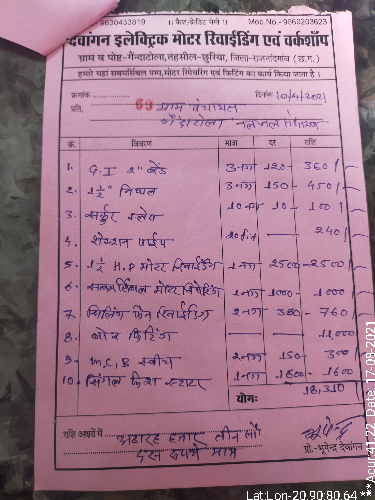 9630433819 ।। कैश/क्रेडिट मेमो ।। Moc.No.-9669203623
देवांगन इलेक्ट्रिक मोटर रिवाईडिंग एवं वर्कशॉप
ग्राम व पोष्ट-गैंन्दाटोला, तहसील-छुरिया, जिला-राजनांदगांव (छ.ग.)
हमारे यहां सबमर्सिबल पम्प, मोटर रिपेयरिंग एवं फिटिंग का कार्य किया जाता है।
क्रमांक दिनांक 10/4/2021
प्रति, 69 ग्राम पंचायत
गैंदाटोला नलजल
क्रं. विवरण मात्रा दर राशि
1. G.I 2" बेंड 3 नग 120- 360/-
2. 1½" निप्पल 3 नग 150- 450/-
3. 10 नग 10- 100/-
4. पाईप 20 फिट - 240/-
5. 1½ H.P मोटर रिवाईंडिंग 1 नग 2500-2500/-
6. सबमर्सिबल मोटर रिपेरिंग 1 नग 1000- 1000
7. सिलिंग फेन रिवाईडिंग 2 नग 380- 760/-
8. बोर फिटिंग - - 11,000
9. M.C.B स्वीच 2 नग 150- 300
10. सिंगल फेस स्टाटर 1 नग 1600- 1600
योगः 18,310/-
राशि अक्षरों में अठारह हजार तीन सौ
दस रुपये मात्र
प्रो.-भूपेन्द्र देवांगन
Lat:Lon-20.90:80.64 ***
***Acur:41.22 Date:17-08-2021